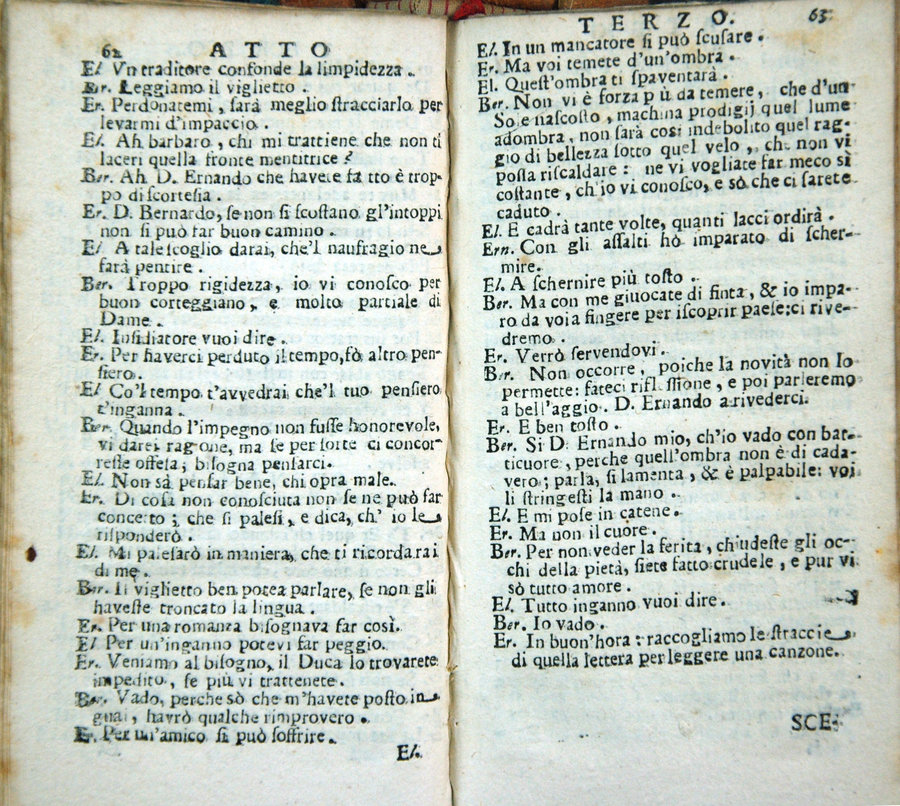 62 ATTO
El. Vn traditore confonde la limpidezza.
Ber. Leggiamo il viglietto.
Er. Perdonatemi, sarà meglio stracciarlo per
levarmi d'impaccio.
El. Ah barbaro, chi mi trattiene che non ti
laceri quella fronte mentitrice?
Ber. Ah D. Ernando che havete fatto è trop-
po di scortesia.
Er. D. Bernardo, se non si scostano gl'intoppi
non si può far buon camino.
El. A tale scoglio darai, che'l naufragio ne
farà pentire.
Ber. Troppo rigidezza, io vi conosco per
buon corteggiano, e molto partiale di
Dame.
El. Insidiatore vuoi dire.
Er. Per haverci perduto il tempo, fò altro pen-
siero.
El. Co'l tempo t'avvedrai che'l tuo pensiero
t'inganna.
Ber. Quando l'impegno non fusse honorevole,
vi darei ragione, ma se per sorte ci concor-
resse offesa; bisogna pensarci.
El. Non sà pensar bene, chi opra male.
Er. Di cosa non conosciuta non se ne può far
concetto; che si palesi, e dica, ch'io le
risponderò.
El. Mi palesarò in maniera, che ti ricordarai
di me.
Ber. Il viglietto ben potea parlare, se non gli
haveste troncato la lingua.
Er. Per una romanza bisognava far così.
El Per un'inganno potevi far peggio.
Er. Veniamo al bisogno, il Duca lo trovarete
impedito, se più vi trattenete.
Ber. Vado, perche sò che m'havete posto in
guai, havrò qualche rimprovero.
Er. Per un'amico si può soffrire.
El.
TERZO. 63
El. In un mancatore si può scusare.
Er. Ma voi temete d'un'ombra.
El. Quest'ombra ti spaventarà.
Ber. Non vi è forza più da temere, che d'un
Sole nascosto, machina prodigij quel lume
adombra, non sarà così indebolito quel rag-
gio di bellezza sotto quel velo, che non vi
possa riscaldare: ne vi vogliate far meco sì
costante, ch'io vi conosco, e sò che ci sarete
caduto.
El. E cadrà tante volte, quanti lacci ordirà.
Ern. Con gli assalti hò imparato di scher-
mire.
El. A schernire più tosto.
Ber. Ma con me giuocate di finta, & io impa-
ro da voi a fingere per iscoprir paese: ci rive-
dremo.
Er. Verrò servendovi.
Ber. Non occorre, poiche la novità non lo
permette: fateci riflessione, e poi parleremo
a bell'aggio. D. Ernando a rivederci.
Er. E ben tosto.
Ber. Si D. Ernando mio, ch'io vado con bat-
ticuore, perche quell'ombra non è di cada-
vero; parla, si lamenta, & è palpabile: voi
li stringesti la mano.
El. E mi pose in catene.
Er. Ma non il cuore.
Ber. Per non veder la ferita, chiudeste gli oc-
chi della pietà, siete fatto crudele, e pur vi
sò tutto amore.
El. Tutto inganno vuoi dire.
Ber. Io vado.
Er. In buon'hora: raccogliamo le straccie
di quella lettera per leggere una canzone.
SCE-